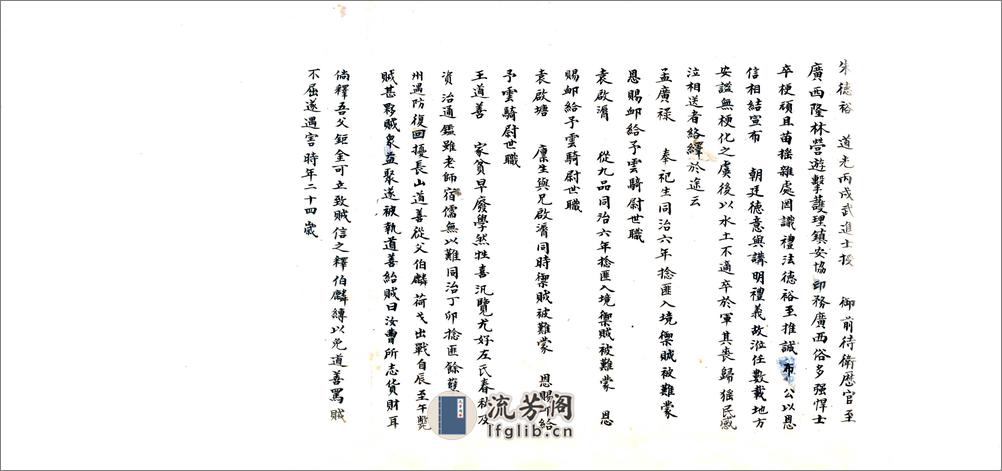 朱德裕　道光丙戌武進士授　御前侍衛歷官至
廣西隆林營遊擊護理鎮安協印務廣西俗多強悍士
卒梗頑且苗猺雜處罔識禮法德裕至推誠布公以恩
信相結宣布　朝廷德意與講明禮義故涖任數載地方
安謐無梗化之虞後以水土不適卒於軍其喪歸猺民感
泣相送者絡繹於途云
孟廣祿　奉祀生同治六年捻匪入境禦賊被難蒙
恩賜卹給予雲騎尉世職
袁啟濟　從九品同治六年捻匪入境禦賊被難蒙　恩
賜卹給予雲騎尉世職
袁啟塘　廩生與兄啟濟同時禦賊被難蒙　恩賜卹給
予雲騎尉世職
王道善　家貧早廢學然性喜汎覽尤好左氏春秋及
資治通鑑雖老師宿儒無以難同治丁卯捻匪餘
州遇防復回擾長山道善從父伯麟荷戈出戰自辰至午斃
賊甚夥賊衆益聚遂被執道善紿賊曰汝曹所志貨財耳
倘釋吾父鉅金可立致賊信之釋伯麟縛以免道善罵賊
不屈遂遇害時年二十四歲
流芳閣
lfglib.cn